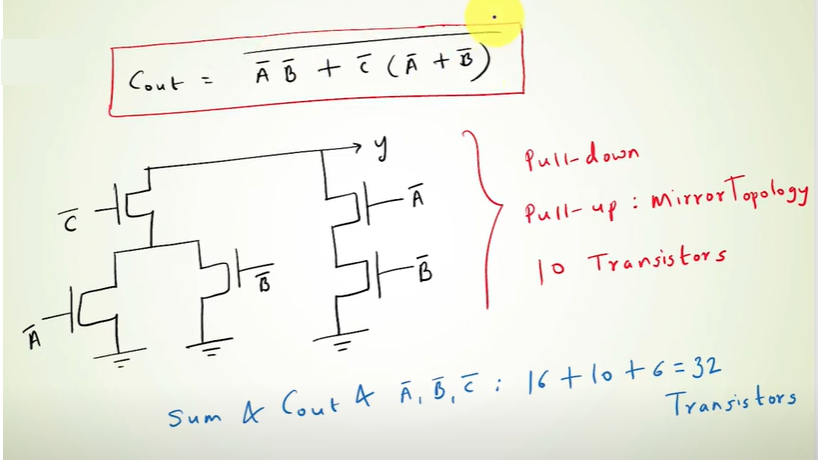 Cout = \overline{A̅ B̅ + C̅ (A̅ + B̅)}
y
C̅
A̅
B̅
A̅
B̅
Pull-down
Pull-up : Mirror Topology
10 Transistors
Sum & Cout & A̅, B̅, C̅ : 16 + 10 + 6 = 32
Transistors